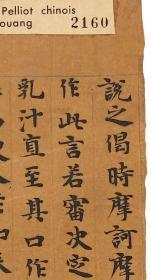 Pelliot chinois
ouang 2160
說之偈時摩訶摩
作此言若審決定
乳汁直至其口作